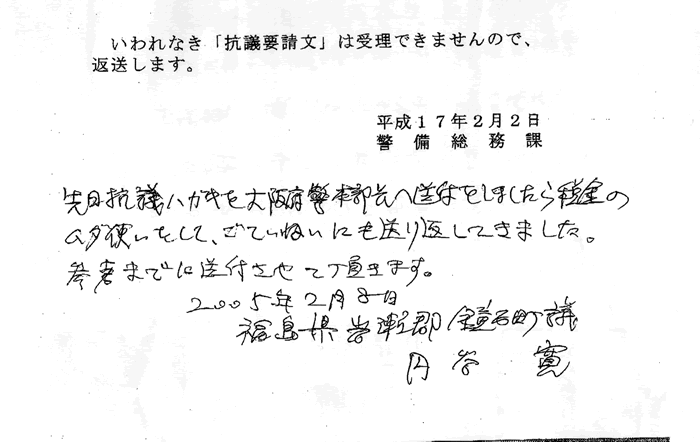 いわれなき「抗議要請文」は受理できませんので、
返送します。
平成１７年２月２日
警備総務課
先日抗議ハガキを大阪府警本部長へ送付をしましたら税金の
ムダ使いをして、ごていねいにも送り返してきました。
参考までに送付させて頂きます。
２００５年２月８日
福島県岩瀬郡鏡石町議
円谷寛